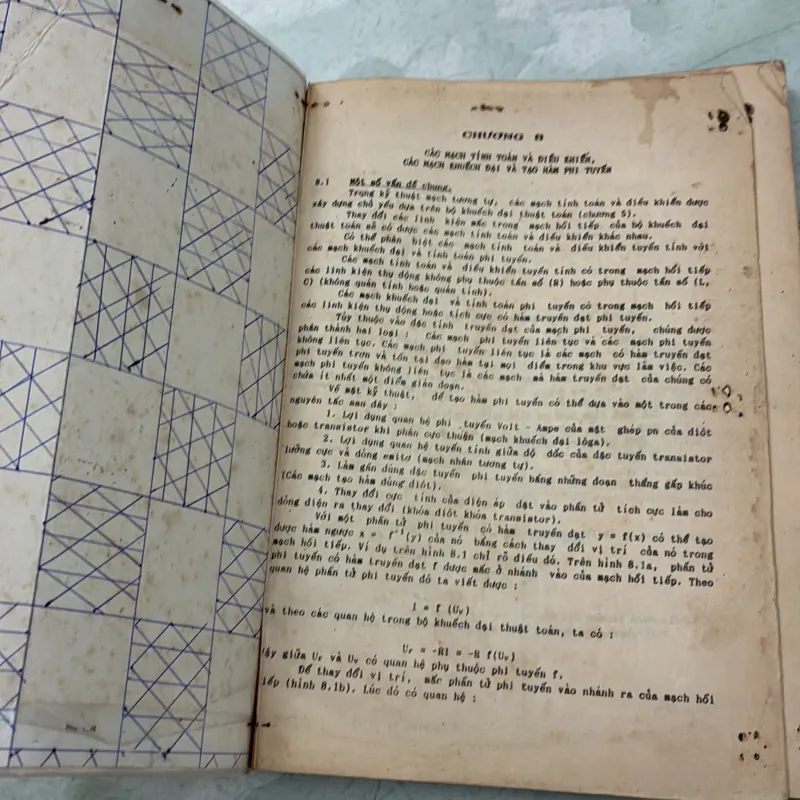 CHƯƠNG 8
CÁC MẠCH TÍNH TOÁN VÀ ĐIỀU KHIỂN,
CÁC MẠCH KHUẾCH ĐẠI VÀ TẠO HÀM PHI TUYẾN
8.1 Một số vấn đề chung.
Trong kỹ thuật mạch tương tự, các mạch tính toán và điều khiển được
xây dựng chủ yếu dựa trên bộ khuếch đại thuật toán (chương 5).
Thay đổi các linh kiện mắc trong mạch hồi tiếp của bộ khuếch đại
thuật toán sẽ có được các mạch tính toán và điều khiển khác nhau.
Có thể phân biệt các mạch tính toán và điều khiển tuyến tính với
các mạch khuếch đại và tính toán phi tuyến.
Các mạch tính toán và điều khiển tuyến tính có trong mạch hồi tiếp
các linh kiện thụ động không phụ thuộc tần số (R) hoặc phụ thuộc tần số (L,
C) (không quán tính hoặc quán tính).
Các mạch khuếch đại và tính toán phi tuyến có trong mạch hồi tiếp
các linh kiện thụ động hoặc tích cực có hàm truyền đạt phi tuyến.
Tùy thuộc vào đặc tính truyền đạt của mạch phi tuyến, chúng được
phân thành hai loại : Các mạch phi tuyến liên tục và các mạch phi tuyến
không liên tục. Các mạch phi tuyến liên tục là các mạch có hàm truyền đạt
phi tuyến trơn và tồn tại đạo hàm tại mọi điểm trong khu vực làm việc. Các
mạch phi tuyến không liên tục là các mạch mà hàm truyền đạt của chúng có
chứa ít nhất một điểm gián đoạn.
Về mặt kỹ thuật, để tạo hàm phi tuyến có thể dựa vào một trong các
nguyên tắc sau đây :
1. Lợi dụng quan hệ phi tuyến Volt - Ampe của mặt ghép pn của điôt
hoặc transistor khi phân cực thuận (mạch khuếch đại lôga).
2. Lợi dụng quan hệ tuyến tính giữa độ dốc của đặc tuyến transistor
lưỡng cực và dòng emitơ (mạch nhân tương tự).
3. Làm gần đúng đặc tuyến phi tuyến bằng những đoạn thẳng gấp khúc
(Các mạch tạo hàm dùng điôt).
4. Thay đổi cực tính của điện áp đặt vào phần tử tích cực làm cho
dòng điện ra thay đổi (khóa điôt khóa transistor).
Với một phần tử phi tuyến có hàm truyền đạt y = f(x) có thể tạo
được hàm ngược x = f⁻¹(y) của nó bằng cách thay đổi vị trí của nó trong
mạch hồi tiếp. Ví dụ trên hình 8.1 chỉ rõ điều đó. Trên hình 8.1a, phần tử
phi tuyến có hàm truyền đạt f được mắc ở nhánh vào của mạch hồi tiếp. Theo
quan hệ phần tử phi tuyến đó ta viết được :
i = f (Uv)
và theo các quan hệ trong bộ khuếch đại thuật toán, ta có :
Ur = -Ri = -R f(Uv)
Vậy giữa Ur và Uv có quan hệ phụ thuộc phi tuyến f.
Để thay đổi vị trí, mắc phần tử phi tuyến vào nhánh ra của mạch hồi
tiếp (hình 8.1b). Lúc đó có quan hệ :